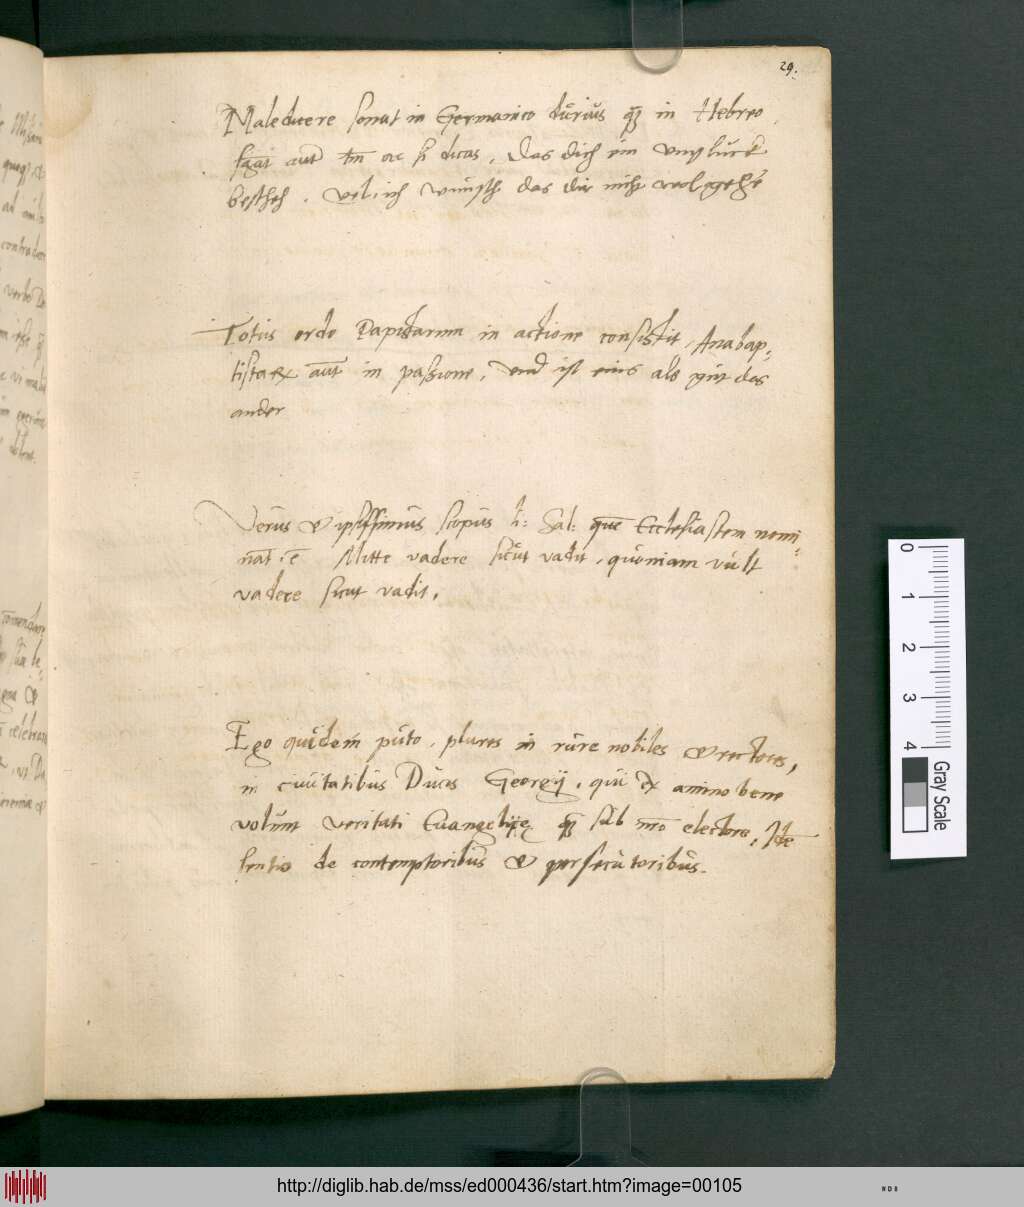 29.
Maledicere sonat in Germanico durius qz in Hebreo,
aut dicas, Das dich ein unglück
besteh. vel, ich wünsch das dir nicht wolgehe
Totus ordo Papistarum in actione consistit, Anabap-
tistarx aut in passione, und ist eins als gut das
ander
Verus & ipsissimus scopus li: Sal: quē Ecclesiastem nomi-
nāt, ē Mitte vadere sicut vadit, quoniam vult
vadere sicut vadit.
Ego quidem puto, plures in rure nobiles & rectores,
in civitatibus Ducis Georgij, qui ex animo bene
volunt veritati Euangelice, qz sub nr̄o electore, Idē
sentio de contemptoribus & persecutoribus.
contrader
verbo
celebra
0
1
2
3
4
Gray Scale
http://diglib.hab.de/mss/ed000436/start.htm?image=00105